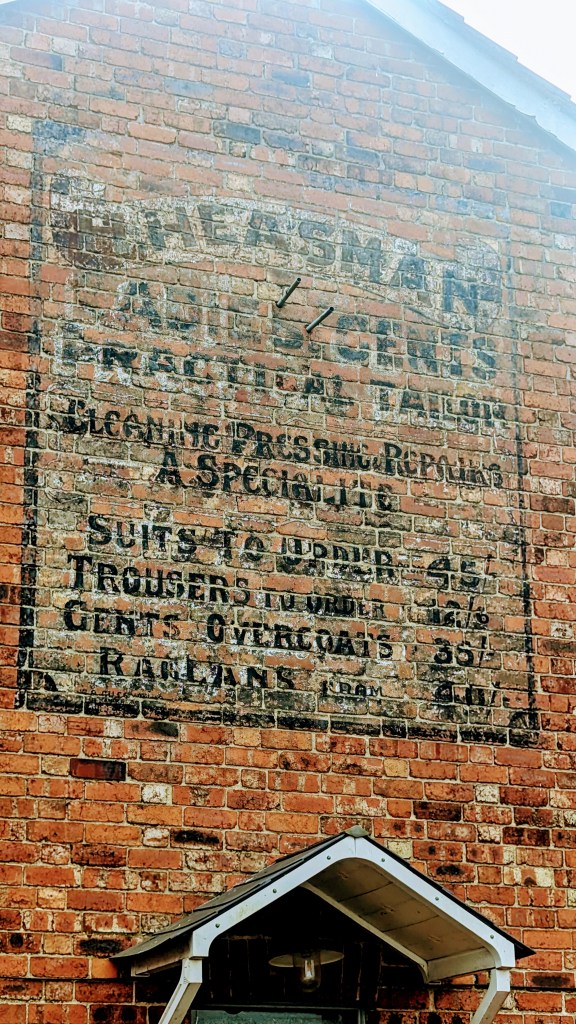 LADIES & GENTS
PRACTICAL TAILOR
CLEANING PRESSING & REPAIRS
A SPECIALITE
SUITS TO ORDER 45/-
TROUSERS TO ORDER 12/6
GENTS OVERCOATS 35/-
RAGLANS FROM 40/-